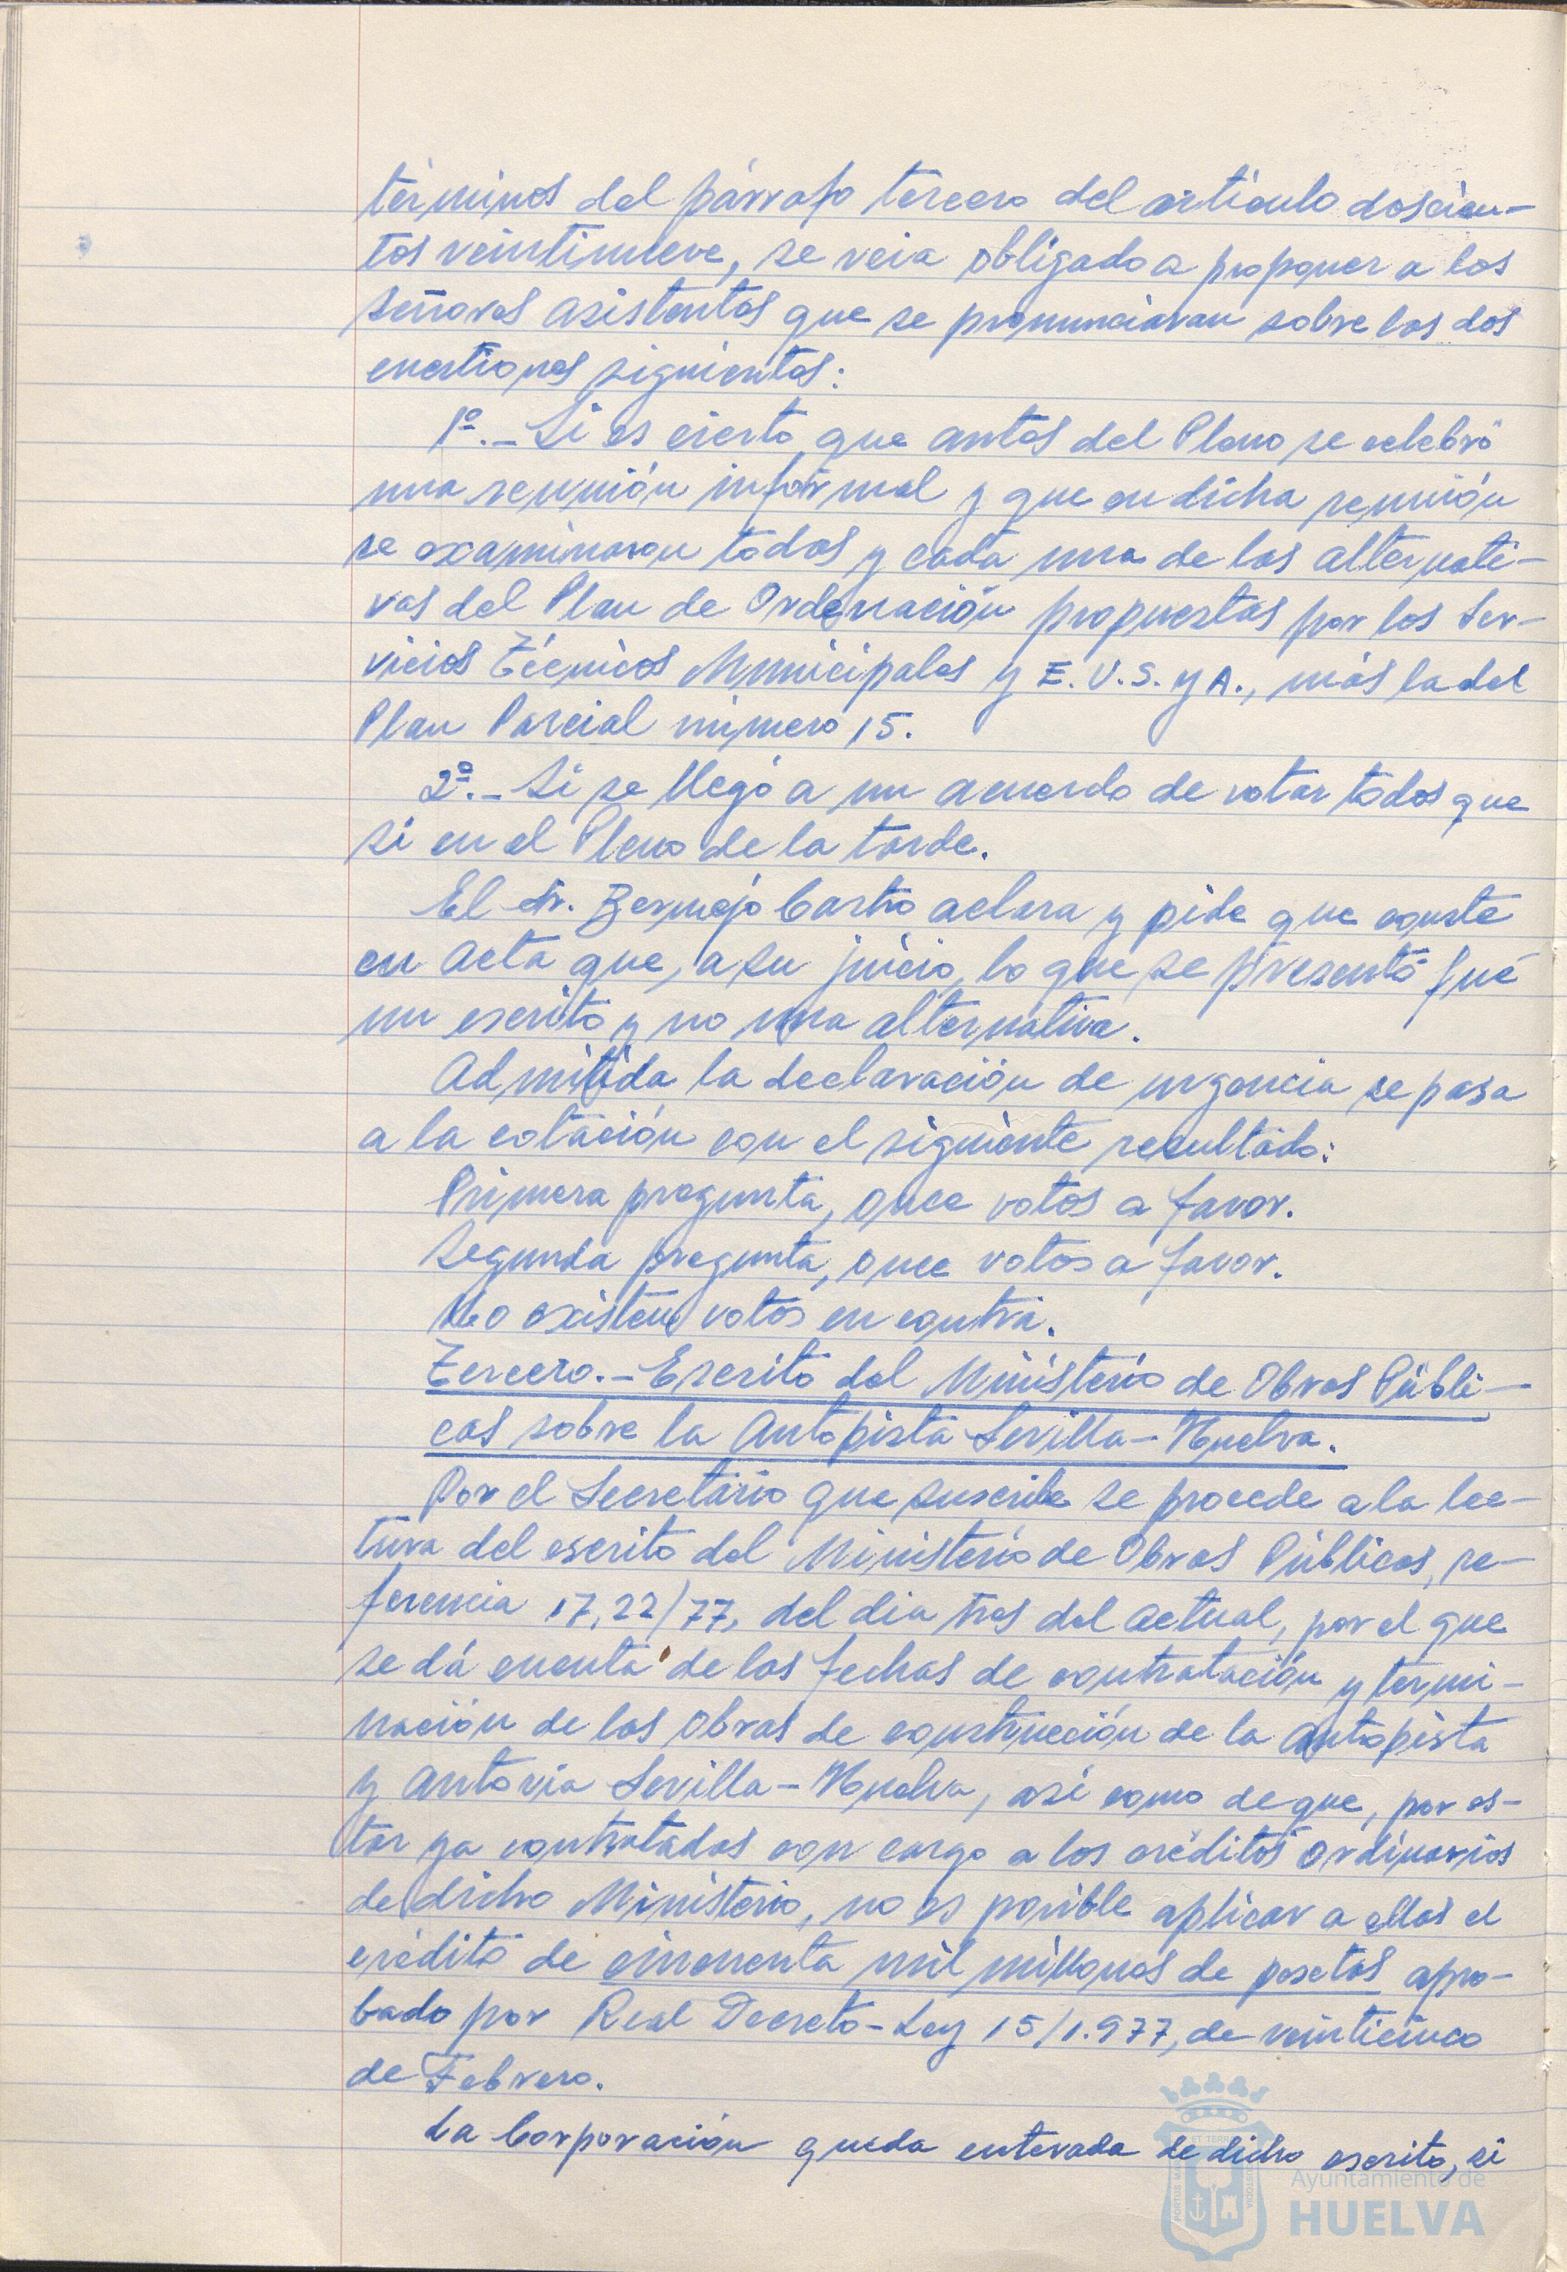 términos del párrafo tercero del artículo doscien-
tos veintinueve, se veia obligado a proponer a los
señores asistentes que se pronunciaran sobre las dos
cuestiones siguientes:
1º.- Si es cierto que antes del Pleno se celebró
una reunión informal y que en dicha reunión
se examinaron todas y cada una de las alternati-
vas del Plan de Ordenación propuestas por los Ser-
vicios Técnicos Municipales y E.V.S. y A., más la del
Plan Parcial número 15.
2º.- Si se llegó a un acuerdo de votar todos que
si en el Pleno de la tarde.
El Sr. Bermejo Castro aclara y pide que conste
en Acta que, a su juicio, lo que se presentó fué
un escrito y no una alternativa.
Admitida la declaración de urgencia se pasa
a la votación con el siguiente resultado:
Primera pregunta, once votos a favor.
Segunda pregunta, once votos a favor.
No existen votos en contra.
Tercero.- Escrito del Ministerio de Obras Públi-
cas sobre la Autopista Sevilla-Huelva.
Por el Secretario que suscribe se procede a la lec-
tura del escrito del Ministerio de Obras Públicas, re-
ferencia 17,22/77, del dia tres del actual, por el que
se dá cuenta de las fechas de contratación y termi-
nación de las Obras de construcción de la Autopista
y Autovia Sevilla-Huelva, asi como de que, por es-
tar ya contratadas con cargo a los créditos ordinarios
de dicho Ministerio, no es posible aplicar a ellas el
crédito de cincuenta mil millones de pesetas apro-
bado por Real Decreto-Ley 15/1.977, de veinticinco
de Febrero.
La Corporación queda enterada de dicho escrito, si
Ayuntamiento de
HUELVA